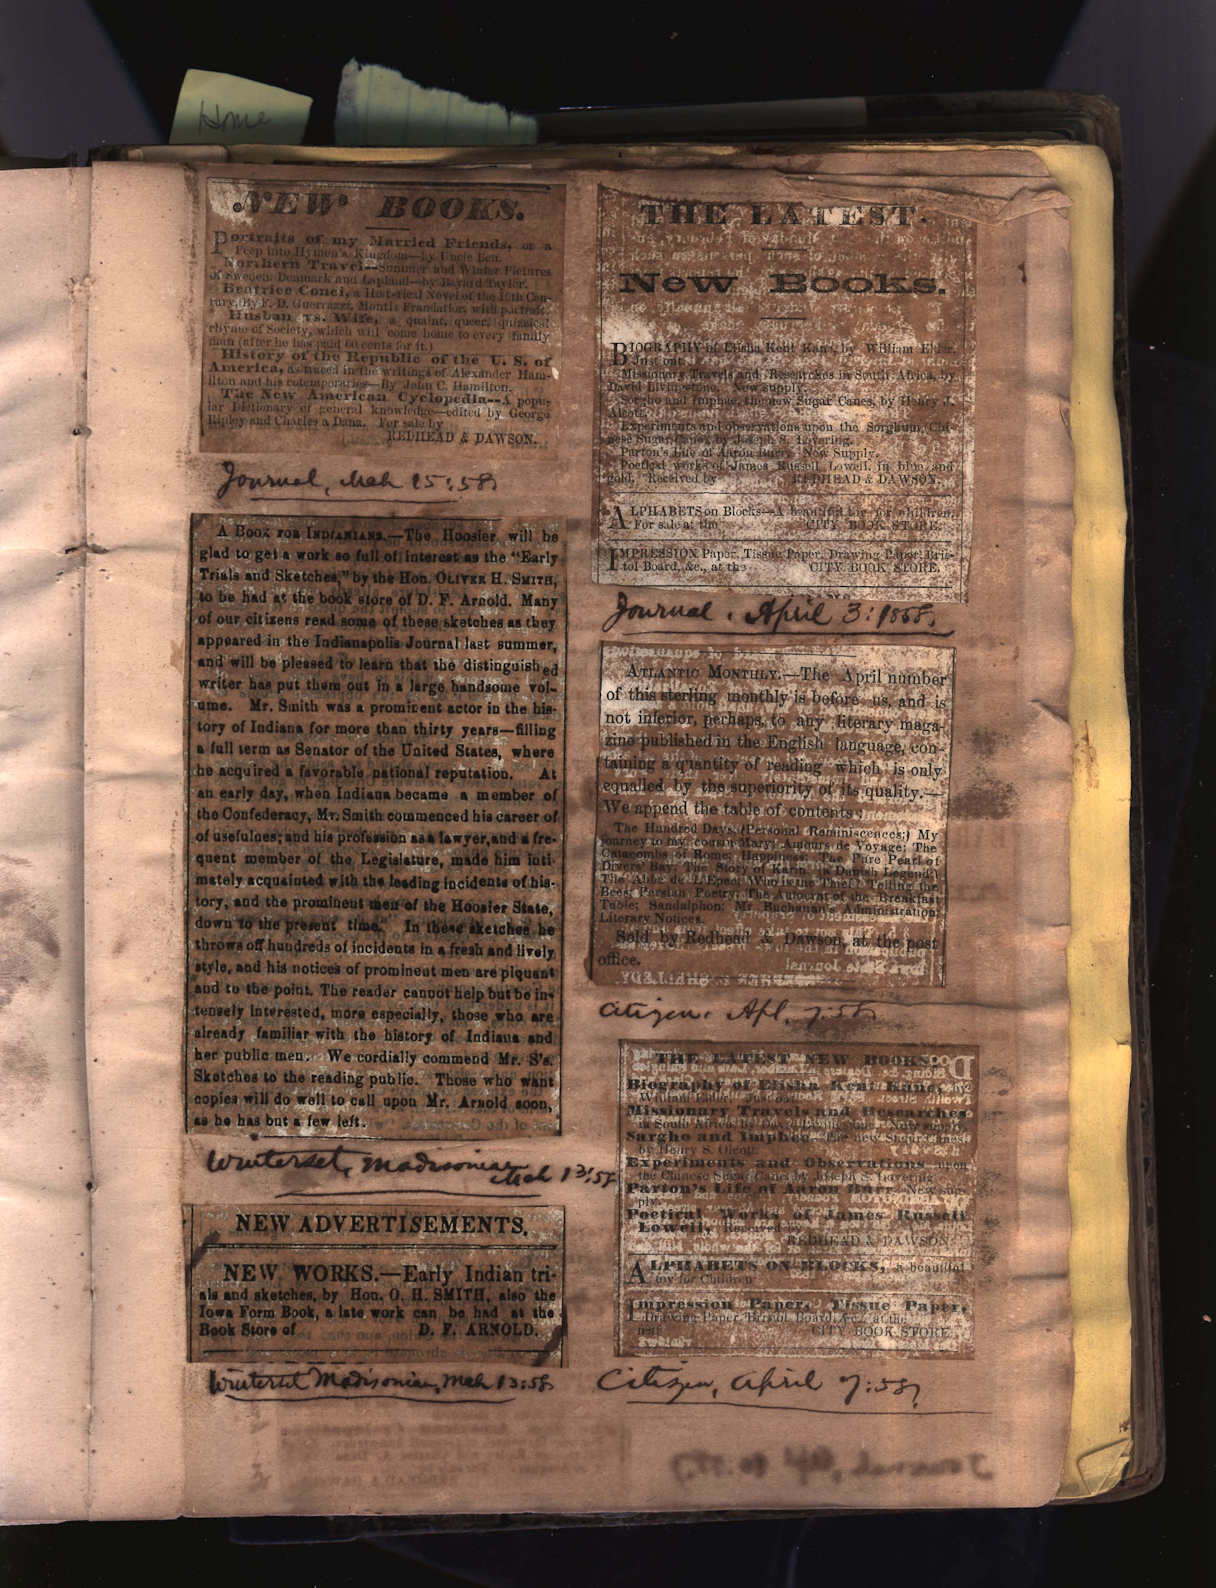 Home
NEW BOOKS.
Portraits of my Married Friends, or a
Peep into Hymen's Kingdom—by Uncle Ben.
Northern Travel—Summer and Winter Pictures
of Sweden, Denmark and Lapland—by Bayard Taylor.
Beatrice Cenci, a Historical Novel of the 16th Cen-
tury, By F. D. Guerrazzi, with portrait.
Husban vs. Wife, a quaint, queer, quizzical
rhyme of Society, which will come home to every family
man (after he has paid 60 cents for it.)
History of the Republic of the U. S. of
America, as traced in the writings of Alexander Ham-
ilton and his cotemporaries—By John C. Hamilton.
The New American Cyclopedia--A popu-
lar Dictionary of general knowledge—edited by George
Ripley and Charles a Dana. For sale by
REDHEAD & DAWSON.
Journal, Mch 15:58,
A BOOK FOR INDIANIANS.—The Hoosier will be
glad to get a work so full of interest as the "Early
Trials and Sketches," by the Hon. OLIVER H. SMITH,
to be had at the book store of D. F. Arnold. Many
of our citizens read some of these sketches as they
appeared in the Indianapolis Journal last summer,
and will be pleased to learn that the distinguished
writer has put them out in a large handsome vol-
ume. Mr. Smith was a prominent actor in the his-
tory of Indiana for more than thirty years—filling
a full term as Senator of the United States, where
he acquired a favorable national reputation. At
an early day, when Indiana became a member of
the Confederacy, Mr. Smith commenced his career of
of usefulnes; and his profession as a lawyer, and a fre-
quent member of the Legislature, made him inti-
mately acquainted with the leading incidents of his-
tory, and the prominent men of the Hoosier State,
down to the present time." In these sketches he
throws off hundreds of incidents in a fresh and lively
style, and his notices of prominent men are piquant
and to the point. The reader cannot help but be in-
tensely interested, more especially, those who are
already familiar with the history of Indiana and
her public men. We cordially commend Mr. S's.
Sketches to the reading public. Those who want
copies will do well to call upon Mr. Arnold soon,
as he has but a few left.
Winterset, Madisonian
Mch 13:58
NEW ADVERTISEMENTS.
NEW WORKS.—Early Indian tri-
als and sketches, by Hon. O. H. SMITH, also the
Iowa Form Book, a late work can be had at the
Book Store of D. F. ARNOLD.
Winterset Madisonian, Mch 13:58
THE LATEST.
New Books.
BIOGRAPHY of Elisha Kent Kane, by William Elder.
Just out.
Missionary Travels and Researches in South Africa, by
David Livingstone. New supply.
Sorgho and Imphee, the new Sugar Canes, by Henry J.
Experiments and observations upon the Sorghum, (Chi-
nese Sugar Cane), by Joseph S. Lovering.
Parton's Life of Aaron Burr. New Supply.
Poetical works of James Russell Lowell, in blue and
gold. Received by REDHEAD & DAWSON.
ALPHABETS on Blocks—A beautiful toy for children.
For sale at the CITY BOOK STORE.
IMPRESSION Paper, Tissue Paper, Drawing Paper, Bris-
tol Board, &c., at the CITY BOOK STORE.
Journal, April 3:1858,
ATLANTIC MONTHLY.—The April number
of this sterling monthly is before us, and is
not inferior, perhaps, to any literary maga-
zine published in the English language, con-
taining a quantity of reading which is only
equalled by the superiority of its quality.—
We append the table of contents.
The Hundred Days, (Personal Reminiscences;) My
journey to my cousin Mary; Amours de Voyage; The
Catacombs of Rome; Happiness; The Pure Pearl of
Divers' Bay; The Story of Karin, (a Danish Legend;)
The Abbe de L'Epee; Who is the Thief? Telling the
Bees; Persian Poetry; The Autocrat of the Breakfast
Table; Sandalphon; Mr. Buchanan's Administration;
Literary Notices.
Sold by Redhead & Dawson, at the post
office.
Citizen, Apl. 7:58
THE LATEST NEW BOOKS.
Biography of Elisha Kent Kane,
Missionary Travels and Researches
in South Africa, by
Sargho and Imphee, The new Sugar Canes
by Henry S. Olcott.
Experiments and Observations—upon
the Chinese Sugar Cane, by Joseph S. Lovering
Parton's Life of Aaron Burr—New sup-
ply.
Poetical Works of James Russell
Lowell, Received by
REDHEAD & DAWSON.
ALPHABETS ON BLOCKS, a beautiful
toy for Children
Impression Paper, Tissue Paper,
Drawing Paper, Bristol Board, &c., at the
CITY BOOK STORE.
Citizen, April 7:58,